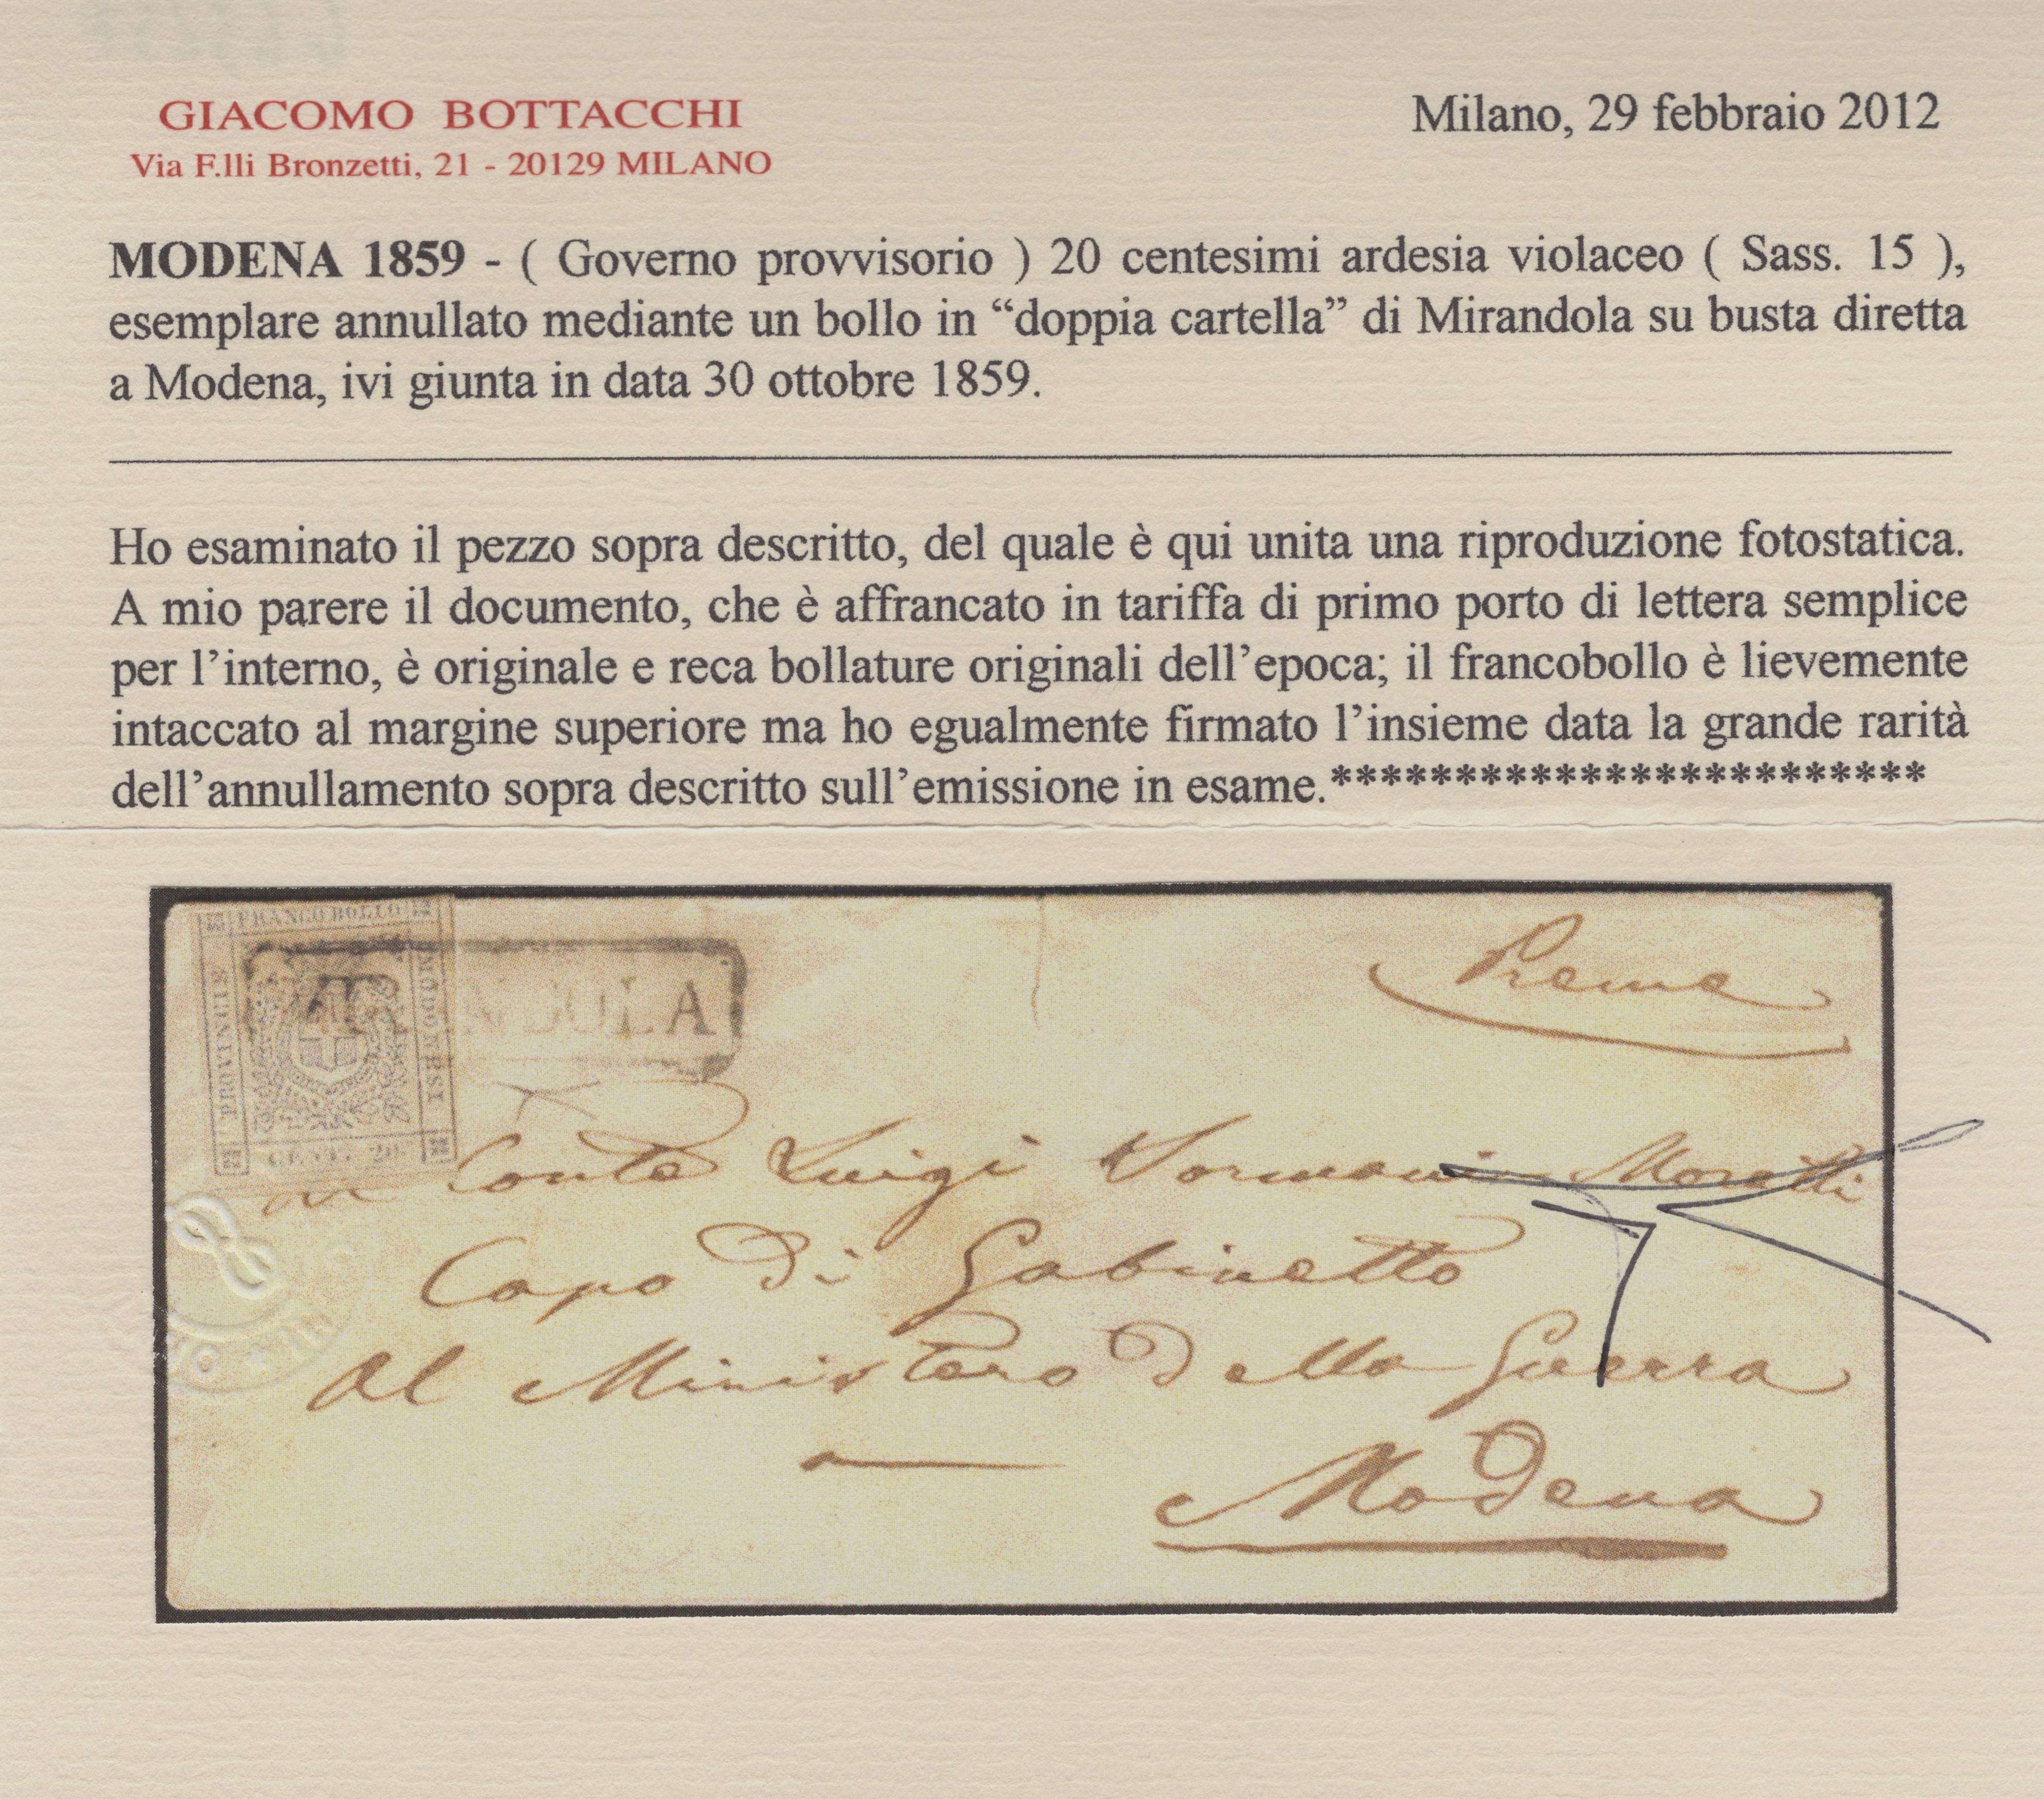 GIACOMO BOTTACCHI
Via F.lli Bronzetti, 21 - 20129 MILANO
Milano, 29 febbraio 2012
MODENA 1859 - ( Governo provvisorio ) 20 centesimi ardesia violaceo ( Sass. 15 ),
esemplare annullato mediante un bollo in “doppia cartella” di Mirandola su busta diretta
a Modena, ivi giunta in data 30 ottobre 1859.
Ho esaminato il pezzo sopra descritto, del quale è qui unita una riproduzione fotostatica.
A mio parere il documento, che è affrancato in tariffa di primo porto di lettera semplice
per l’interno, è originale e reca bollature originali dell’epoca; il francobollo è lievemente
intaccato al margine superiore ma ho egualmente firmato l’insieme data la grande rarità
dell’annullamento sopra descritto sull’emissione in esame.************************
FRANCO BOLLO
PROVINCIE
MODONESI
CENT. 20
NDOLA
Preme
Conte Luigi
Capo di Gabinetto
Al Ministero della Guerra
Modena